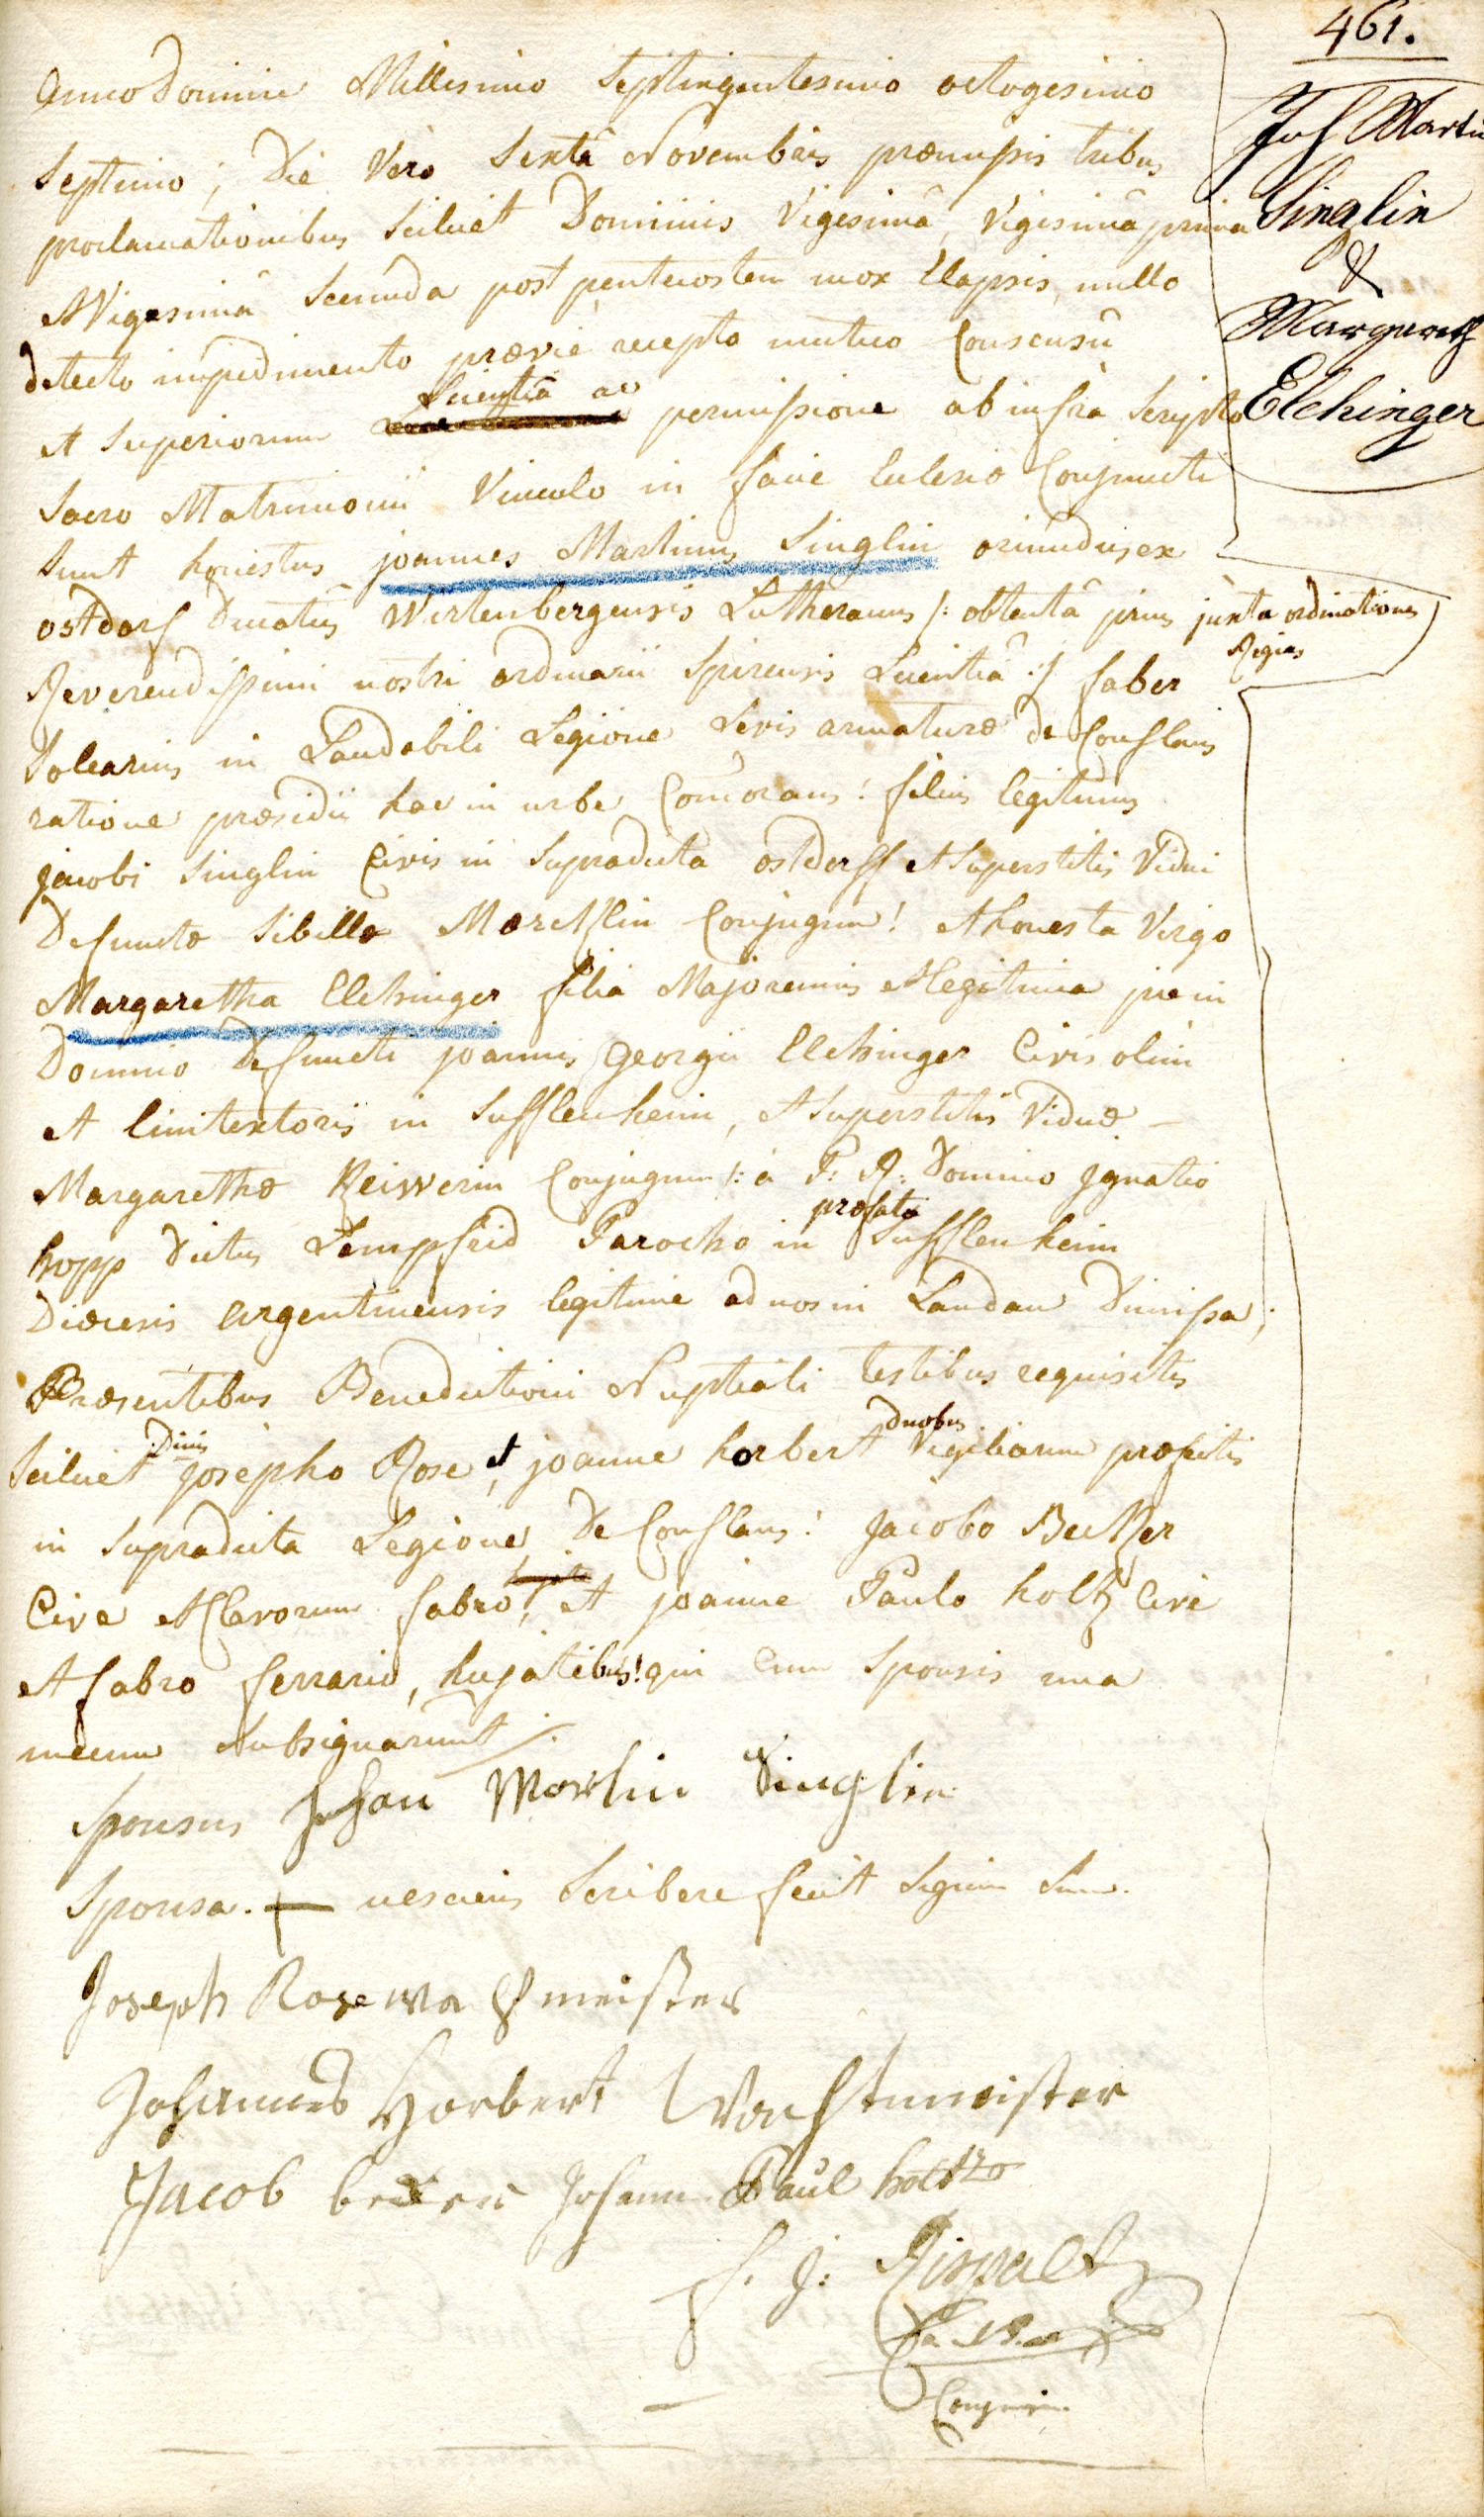 461.
Joh Martin
Singlin
&
Margareth
Elchinger
Anno Domini Millesimo Septingentesimo octogesimo
Septimo, Die Vero Sexta Novembris præmissis tribus
proclamationibus Scilicet Dominicis Vigesimâ, Vigesimâ prima
et Vigesimâ Secunda post pentecosten mox Elapsis, nullo
detecto impedimento prævie recepto mutuo Consensu
Scientiâ ac
et Superiorum permissione ab infra Scripto
Sacro Matrimonii Vinculo in facie Ecclesiæ Conjuncti
Sunt honestus joannes Martinus Singlin oriundus ex
ostdorf Ducatus Wirtenbergensis Lutheranus /: obtentâ prius juxta ordinationes
Regias
Reverendissimi nostri ordinarii Spirensis Licentiâ :/ faber
Solearius in Laudabili Legione Levis armaturæ de Conflans
ratione præsidii hac in urbe Com̄orans! filius legitimus
jacobi Singlin Civis in Supradicta ostdorff et Superstitis Vidui
Defunctæ Sibillæ Mærcklin Conjugum! et honesta Virgo
Margaretha Elchinger filia Majorennis et legitima pie in
Domino Defuncti joannis Georgii Elchinger Civis olim
et linitextoris in Sufflenheim, et Superstitis Viduæ
Margarethæ Reisserin Conjugum /: à P: R: Domino Ignatio
præfato
hopp Dictus Lempfrid Parocho in Sufflenheim
Diæcesis argentinensis legitime ad nos in Landau Dimissa;
Præsentibus Benedictioni Nuptiali testibus requisitis
Dnis duobus
Scilicet josepho Rose et joanne horbert Vigiliarum præfectis
in Supradicta Legione De Conflans! Jacobo Becker
Cive et Clavorum fabro, et joanne Paulo holtz Cive
et fabro ferrario, hujatibus! qui Cum Sponsis una
mecum Subsignarunt
Sponsus Johan Martin Singlin
Sponsa. + nesciens Scribere fecit Signum Suum.
Joseph Rose wachmeister
Johannes Horbert Wachtmeister
Jacob becker Johann Paul holtz